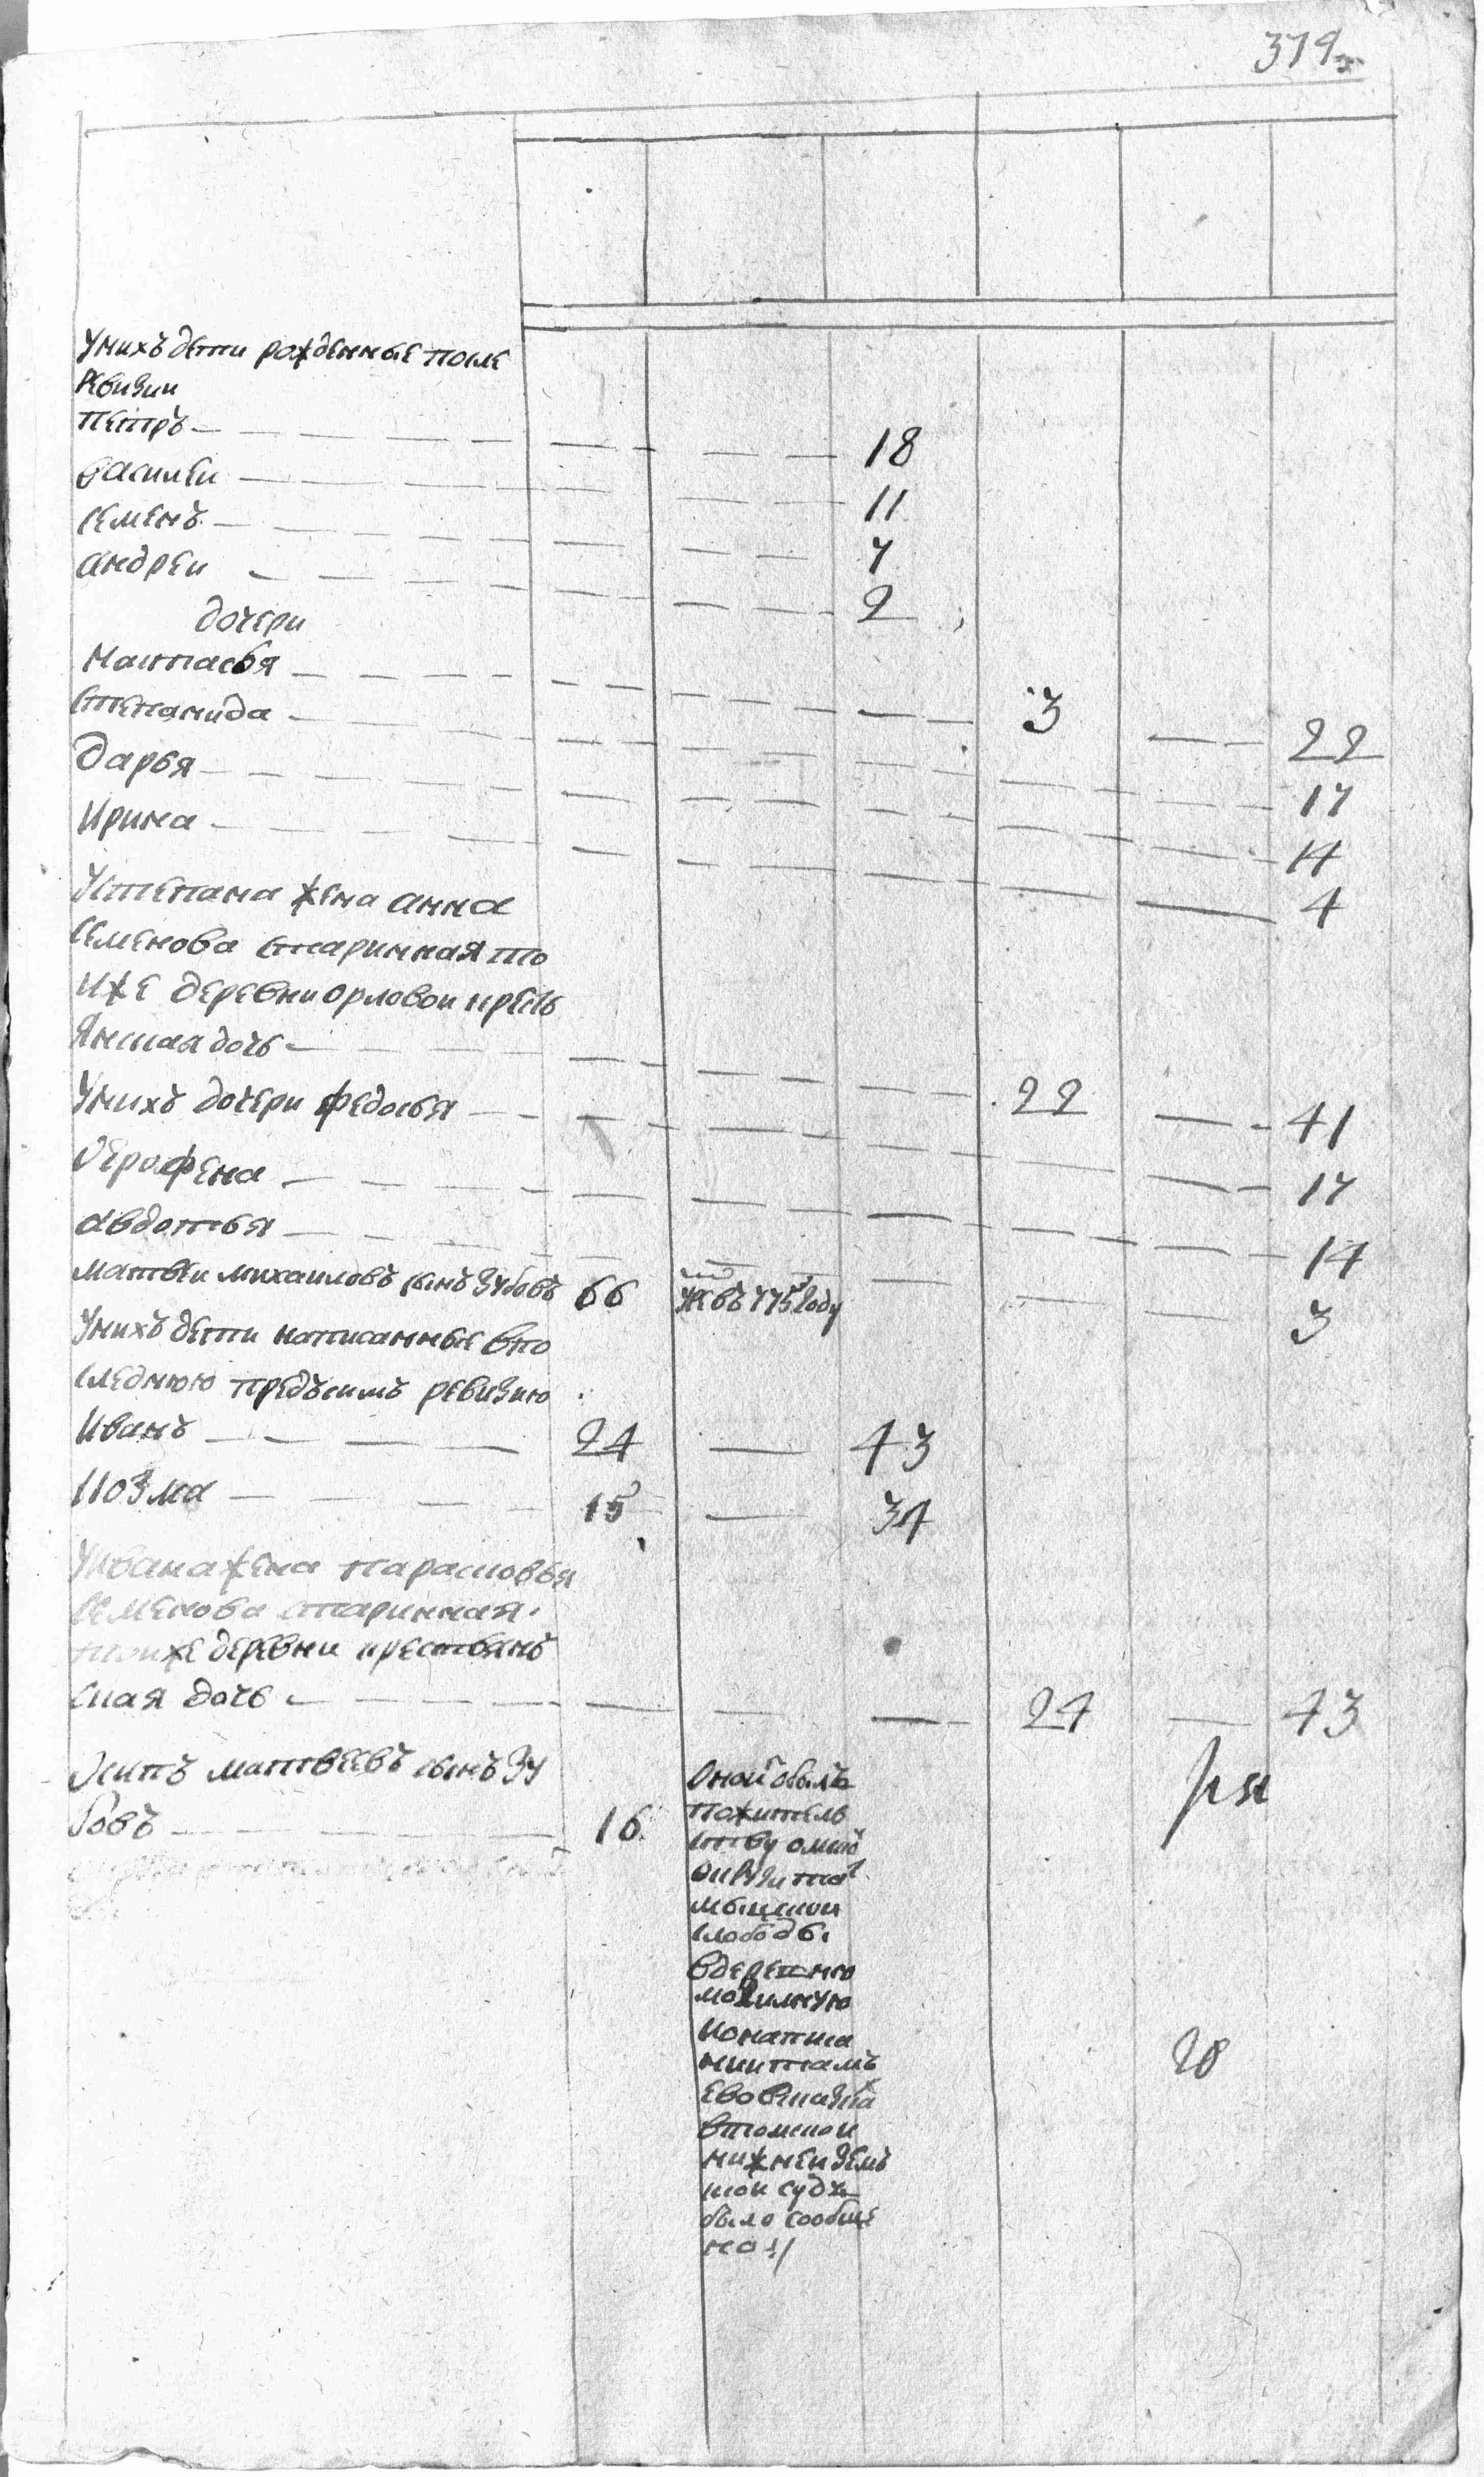 379
Унихъ дети рожденные после
ревизии
Петръ — 18
Василеи — 11
Семенъ — 7
Андреи — 2
дочери
Настасья — 3 — 22
Степанида — 17
Дарья — 14
Ирина — 4
У степана жена анна
семенова старинная то
иже деревни орловои кресть
янская дочь — 22 — 41
Унихъ дочери федосья — 17
Огрофена — 14
авдотья — 3
матвеи михаиловъ сынъ зубовъ 66 въ 775 году
Унихъ дети написанные впо
следнюю предъсимъ ревизию
Иванъ — 24 — 43
Козма — 15 — 34
У ивана жена парасковья
семенова старинная
тоиже деревни крестьянъ
ская дочь — 24 — 43
Осипъ матвеевъ сынъ зу
бовъ — 16
Оной
пожитель
ству омской
округи
слободы
вдеревню
могилную
инаписа
ниитамъ
ево
втомской
нижней земъ
ской судъ
было сообще
но
20